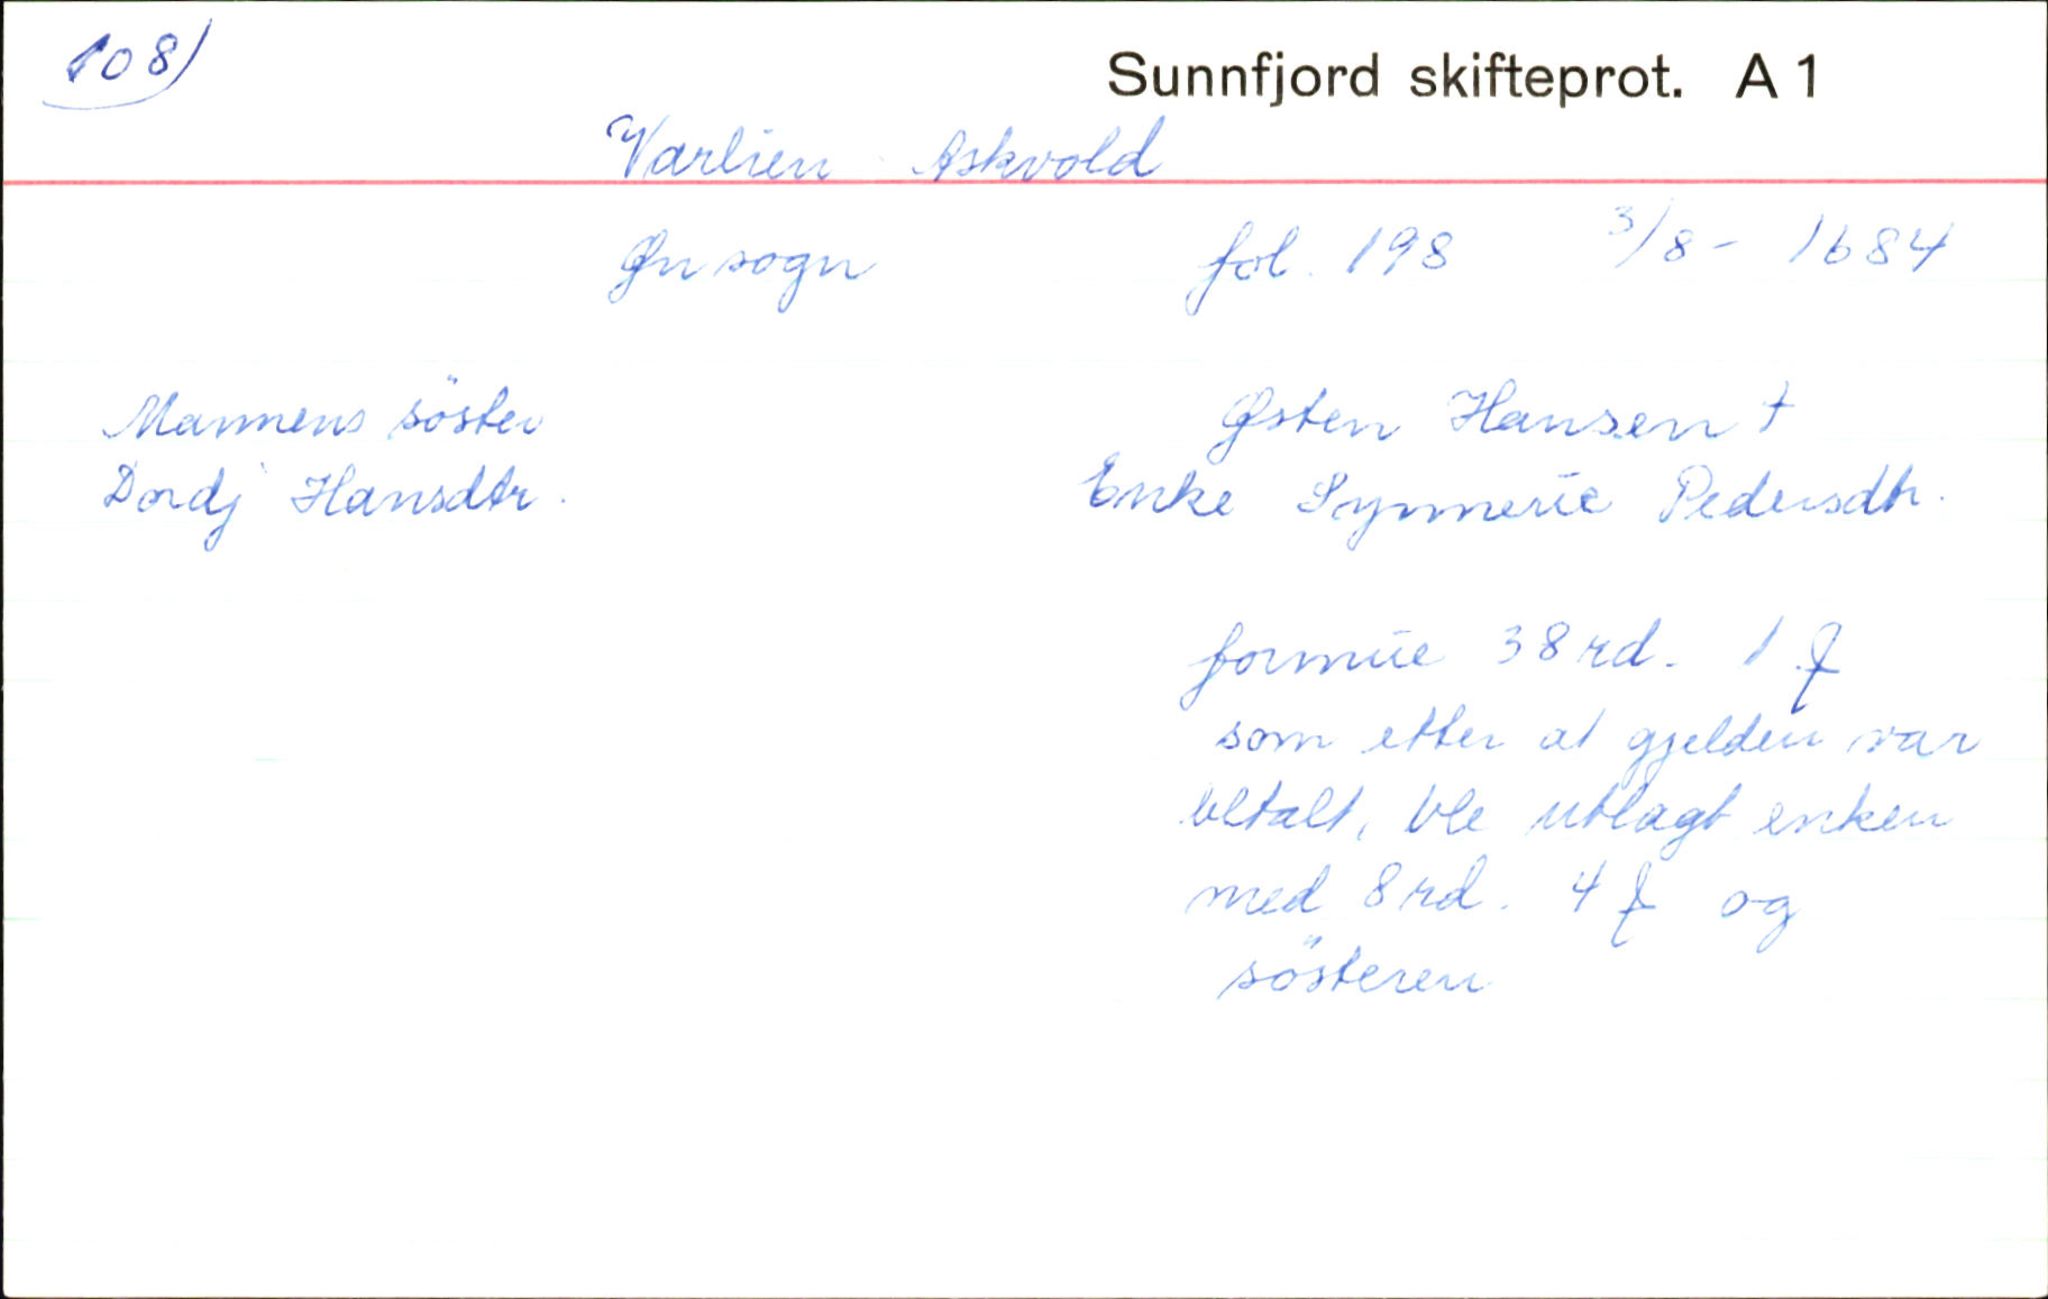 108)
Sunnfjord skifteprot. A 1
Varlien Askvold
Øn sogn fol. 198 3/8 - 1684
Mannens söster
Dordj Hansdtr.
Østen Hansen †
Enke Synnerie Pedersdtr.
formue 38 rd. 1
som etter at gjelden var
betalt, ble utlagt enken
med 8 rd. 4 og
sösteren